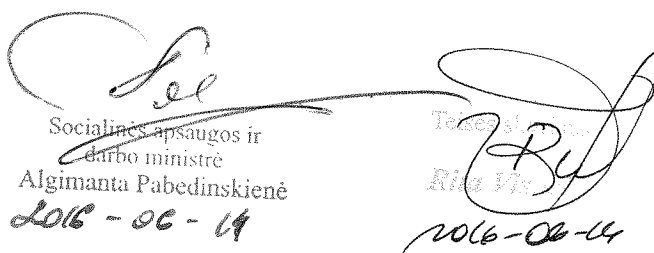 Socialinės apsaugos ir
darbo ministrė
Algimanta Pabedinskienė
2016-06-14
Teisės
Rita
2016-06-14